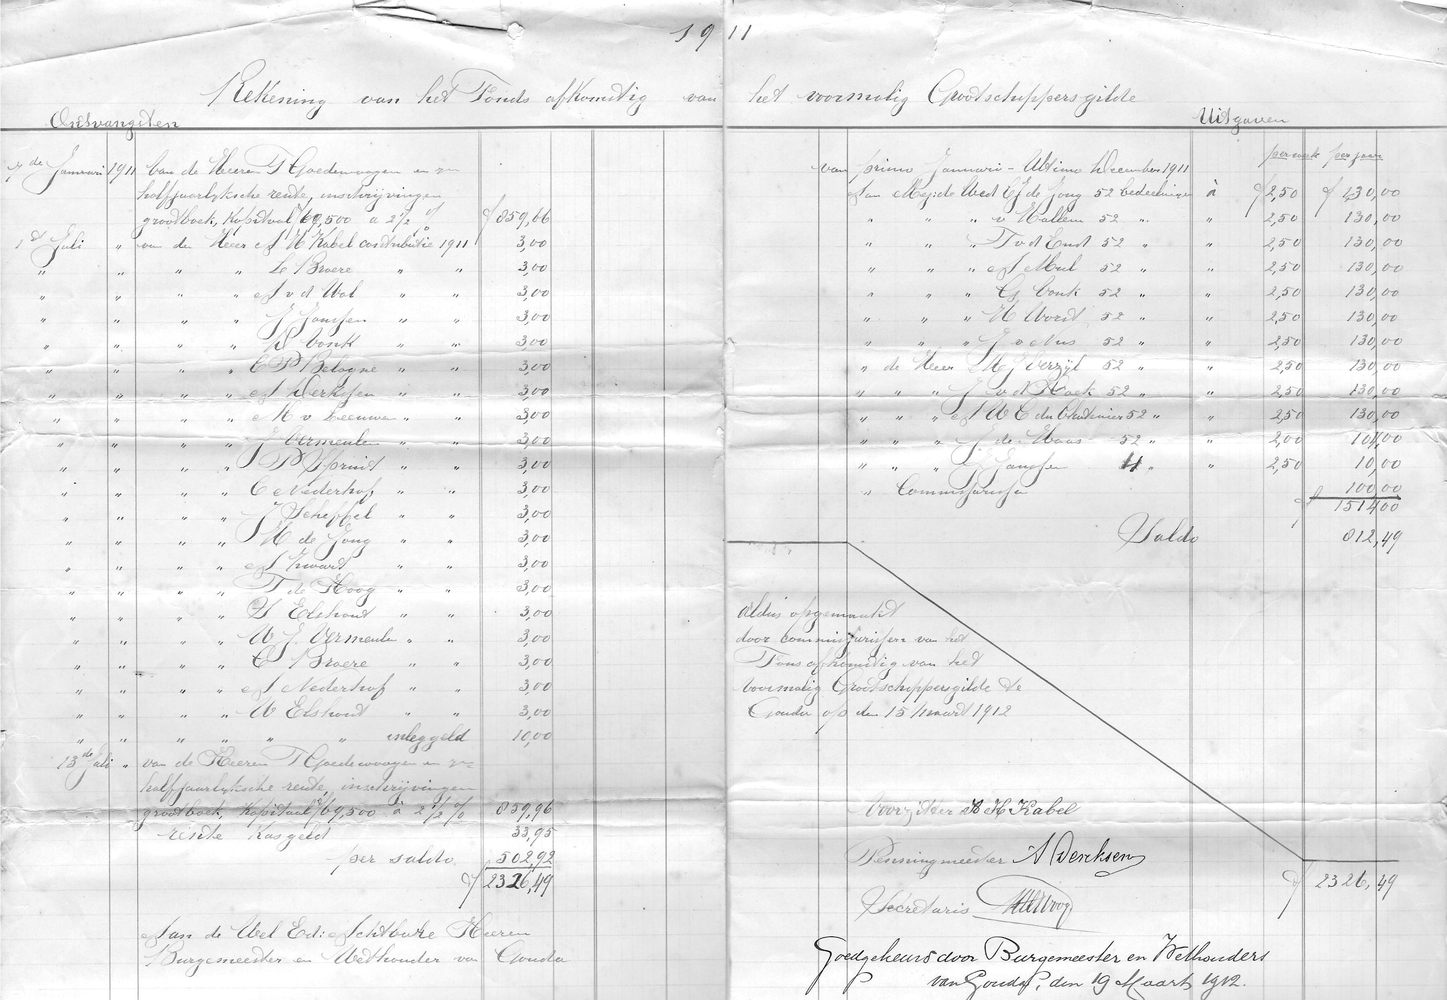 1911
Rekening van het Fonds afkomstig van het voormalig Grootschippersgilde
Ontvangsten
Januari 1911 Van de Heeren T Goedewaagen en zn
halfjaarlyksche rente, inschrijvingen
grootboek, Kapitaal f 69,500 a 2½ % f 859,66
1st Juli " van den Heer A H Kabel contributie 1911 3,00
" " " " C Broere " " 3,00
" " " " A v d Wal " " 3,00
" " " " J Janssen " " 3,00
" " " " Vonk " " 3,00
" " " " C P Belogne " " 3,00
" " " " A Derksen " " 3,00
" " " " M v Leeuwen " " 3,00
" " " " J Vermeulen " " 3,00
" " " " P Spruit " " 3,00
" " " " C Nederhof " " 3,00
" " " " J Scheffel " " 3,00
" " " " H de Jong " " 3,00
" " " " A Zwart " " 3,00
" " " " T de Hoog " " 3,00
" " " " Elshout " " 3,00
" " " " W J Vermeulen " " 3,00
" " " " C Broere " " 3,00
" " " " A Nederhof " " 3,00
" " " " W Elshout " " 3,00
" " " " " " inleggeld 10,00
13de Juli " van de Heeren T Goedewaagen en zn
halfjaarlyksche rente, inschrijvingen
grootboek, Kapitaal f 69,500 à 2½ % 859,96
rente Kasgeld 33,95
per saldo 502,92
f 2326,49
Aan de Wel Ed: Achtbare Heeren
Burgemeester en Wethouder van Gouda
Uitgaven
per week per jaar
van primo Januari - Ultimo December 1911
Aan Mej: de Wed de Jong 52 bedeelingen à f 2,50 f 130,00
" " " v Wallem 52 " " 2,50 130,00
" " " T v d Endt 52 " " 2,50 130,00
" " " A Mul 52 " " 2,50 130,00
" " " G Vonk 52 " " 2,50 130,00
" " " H Worst 52 " " 2,50 130,00
" " " J v Nus 52 " " 2,50 130,00
" de Heer Verzijl 52 " " 2,50 130,00
" " " J v d Hoek 52 " " 2,50 130,00
" " " A W E den 52 " " 2,50 130,00
" " " J de Waas 52 " " 2,00 104,00
" " " J Janssen 4 " " 2,50 10,00
" Commissarissen 100,00
f 1514,00
Saldo 812,49
Aldus opgemaakt
door commissarissen van het
Fons afkomstig van het
voormalig Grootschippersgilde te
Gouda op den 15 Maart 1912
Voorzitter A H Kabel
Penningmeester A Dercksen
f 2326,49
Secretaris
Goedgekeurd door Burgemeester en Wethouders
van Gouda, den 19 Maart 1912.